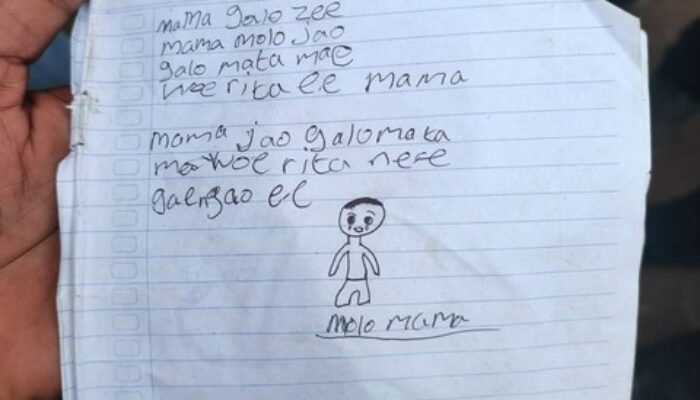 mama galo zee
mama molo jao
galo mata mae
woe rita ee mama
mama jao galomata
ma woe rita nere
gaengao ee
molo mama